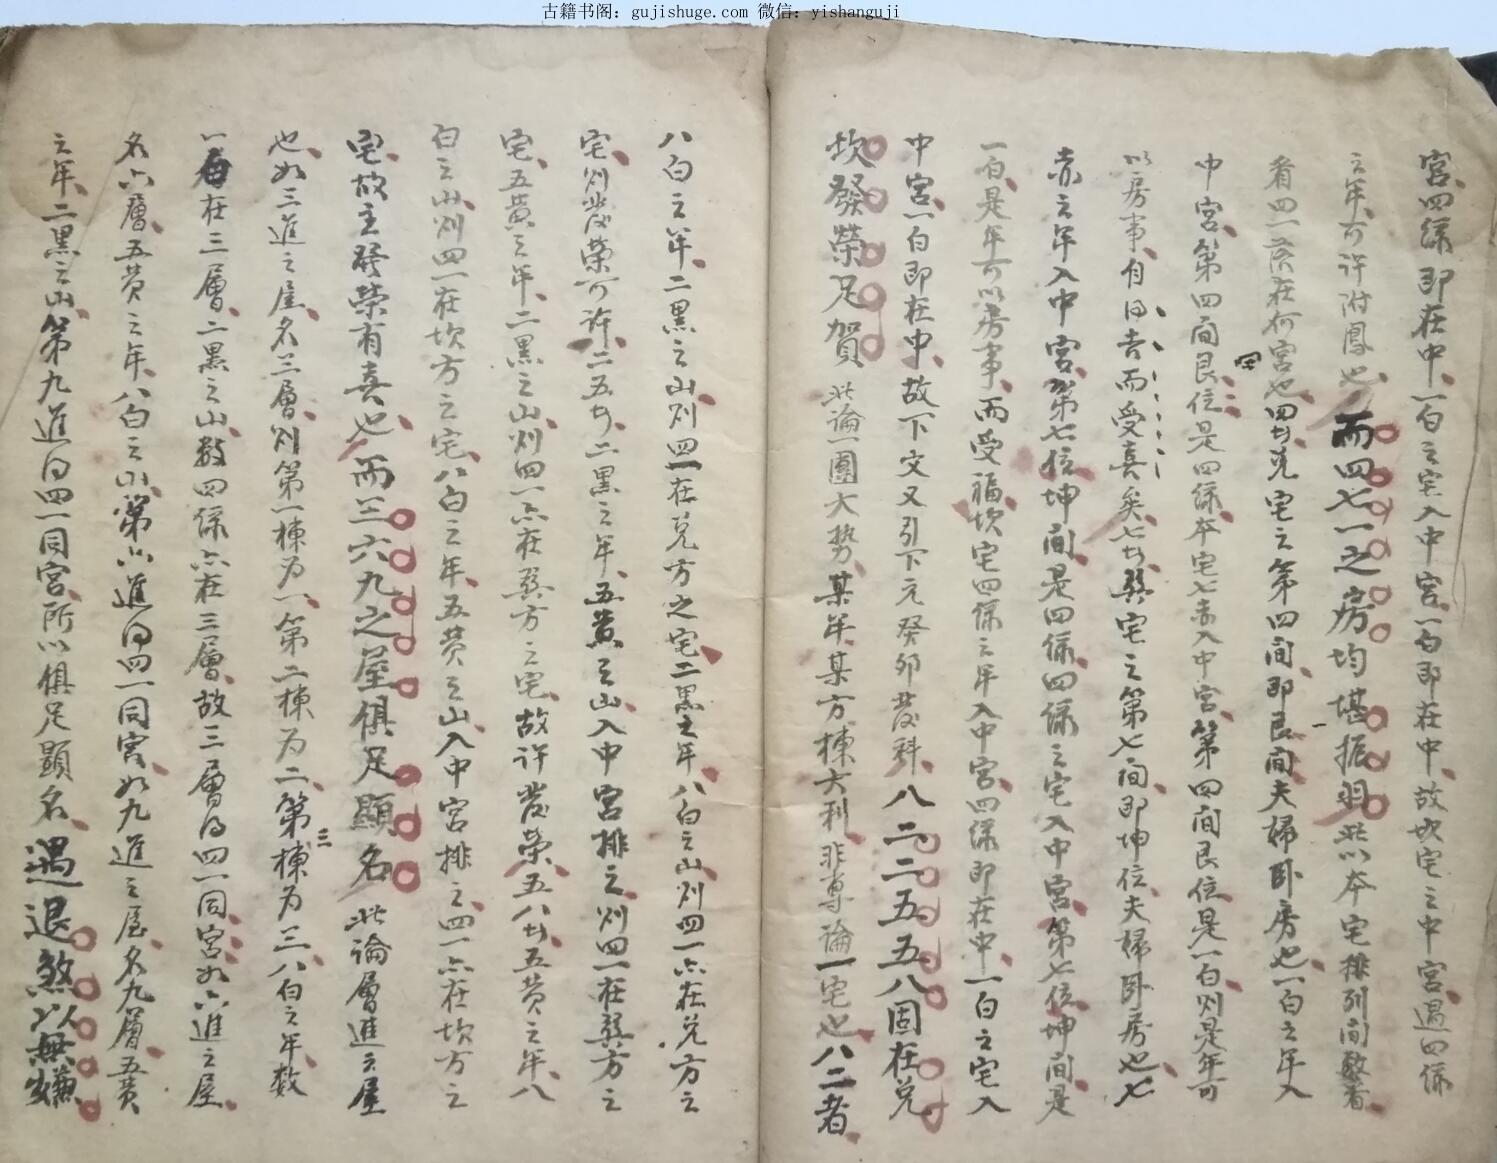 古籍书阁：gujishuge.com 微信：yishanguji
宫四绿即在中一白之宅入中宫一白即在中故坎宅之中宫遇四绿
之年可许附鳳也而四七一之房均堪振羽此以本宅排列间数看
看四一落在何宫也四㪽兑宅之第四间即艮间夫婦卧房也一白之年入
中宫第四间艮位是四绿本宅七赤入中宫第四间艮位是一白则是年可
以房事自日吉而受喜矣七㪽巽宅之第七间即坤位夫婦卧房也七
赤之年入中宫第七位坤间是四绿四绿之宅入中宫第七位坤间是
一白是年可以房事而受福坎宅四绿之年入中宫四绿即在中一白之宅入
中宫一白即在中故下文又引下元癸卯发科八二二五五八固在兑
坎發榮足賀此論一團大势某年某方棟大利非專論一宅也八二者
八白之年二黑之山则四一在兑方之宅二黑之年八白之山则四一亦在兑方之
宅则发榮可许二五㪽二黑之年五黄之山入中宫排之则四一在巽方之
宅五黄之年二黑之山则四一亦在巽方之宅故许发榮五八㪽五黄之年八
白之山则四一在坎方之宅八白之年五黄之山入中宫排之四一亦在坎方之
宅故主發榮有喜也而三六九之屋俱足顯名此論層進之屋
也如三進之屋名三層则第一棟为一第二棟为二第三棟为三八白之年数
一在三層二黑之山数四绿亦在三層故三層日四一同宫如六進之屋
名六層五黄之年八白之山第六進日四一同宫如九進之屋名九層五黄
之年二黑之山第九進日四一同宫所以俱足顯名遇退煞以無嫌